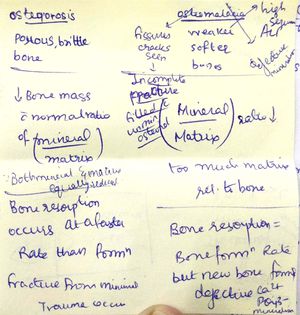 osteoporosis
Porous, brittle
bone
↓ Bone mass
c̄ normal ratio
of (mineral / matrix)
Both mineral & matrix
equally reduced
Bone resorption
occurs at a faster
Rate than formⁿ
Fracture from minimal
Trauma occur
osteomalacia
high
ALP
weaker
softer
bones
defective
fissures
cracks
seen
Incomplete
fracture
filled c̄
osteoid
(Mineral / Matrix) ratio ↓
too much matrix
rel. to bone
Bone resorption =
Bone formⁿ Rate
but new bone forms
defective Ca²⁺